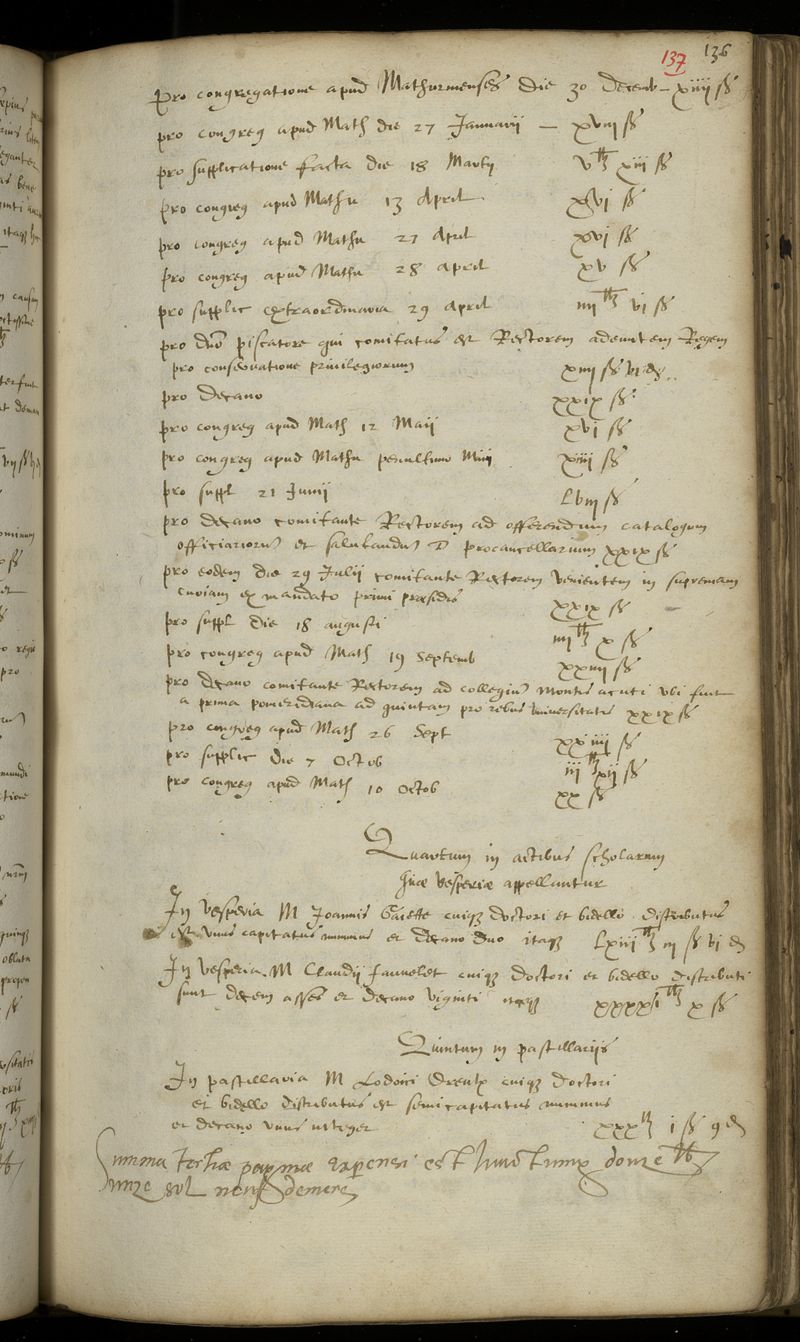 137 136
Pro congregatione apud Mathurinenses die 30 decemb– xiiii ß
pro congreg apud Math die 27 Januarii — xviii ß
pro supplicatione facta die 18 Martii v lb xiii ß
pro congreg apud Mathu 13 April xvi ß
pro congreg apud Mathu 27 April xvi ß
pro congreg apud Mathu 28 April xv ß
pro supplic extraordinaria 29 April iiii lb vi ß
pro duo piscatore qui comitatus est Rectorem adeuntem Regem
pro conservatione privilegiorum xiiii ß vi d
pro decano xxix ß
pro congreg apud Math 12 Maii xvi ß
pro congreg apud Mathu penultimo Maii xiiii ß
pro suppl 21 Junii Lviii ß
pro decano comitante Rectorem ad offerendum catalogum
officiariorum et salutandum D procancellarium xxix ß
pro eodem die 29 Julii comitante Rectorem venientem in supremam
curiam ex mandato primi præsidis xxix ß
pro suppl die 18 augusti iiii lb x ß
pro congreg apud Math 19 Septemb xxiiii ß
pro decano comitante Rectorem ad collegium montis acuti ubi fuit
a prima pomeridiana ad quintam pro rebus universitatis xxix ß
pro congreg apud Math 26 Sept xxiiii ß
pro supplic die 7 Octob iii lb xii ß
pro congreg apud Math 10 Octob xx ß
Quartum in actibus scholarum
quæ vesperiæ appellantur
In vesperia M Joannis cuiq; doctori et bidello distributus
est unus capitatus nummus et decano duo itaq; Lxiii lb iii ß vi d
In vesperia M Claudii fauvelet cuiq; doctori et bidello distributi
sunt decem asses et decano viginti itaq; x ß
Quintum in pastillariis
In pastillaria M Lodoici cuiq; doctori
et bidello distributus est semicapitatus nummus
et decano unus integer xxx lb i ß 9 d
Summa tertiæ paginæ expensi est huict vingt douze lb
unze sol neuf deniers